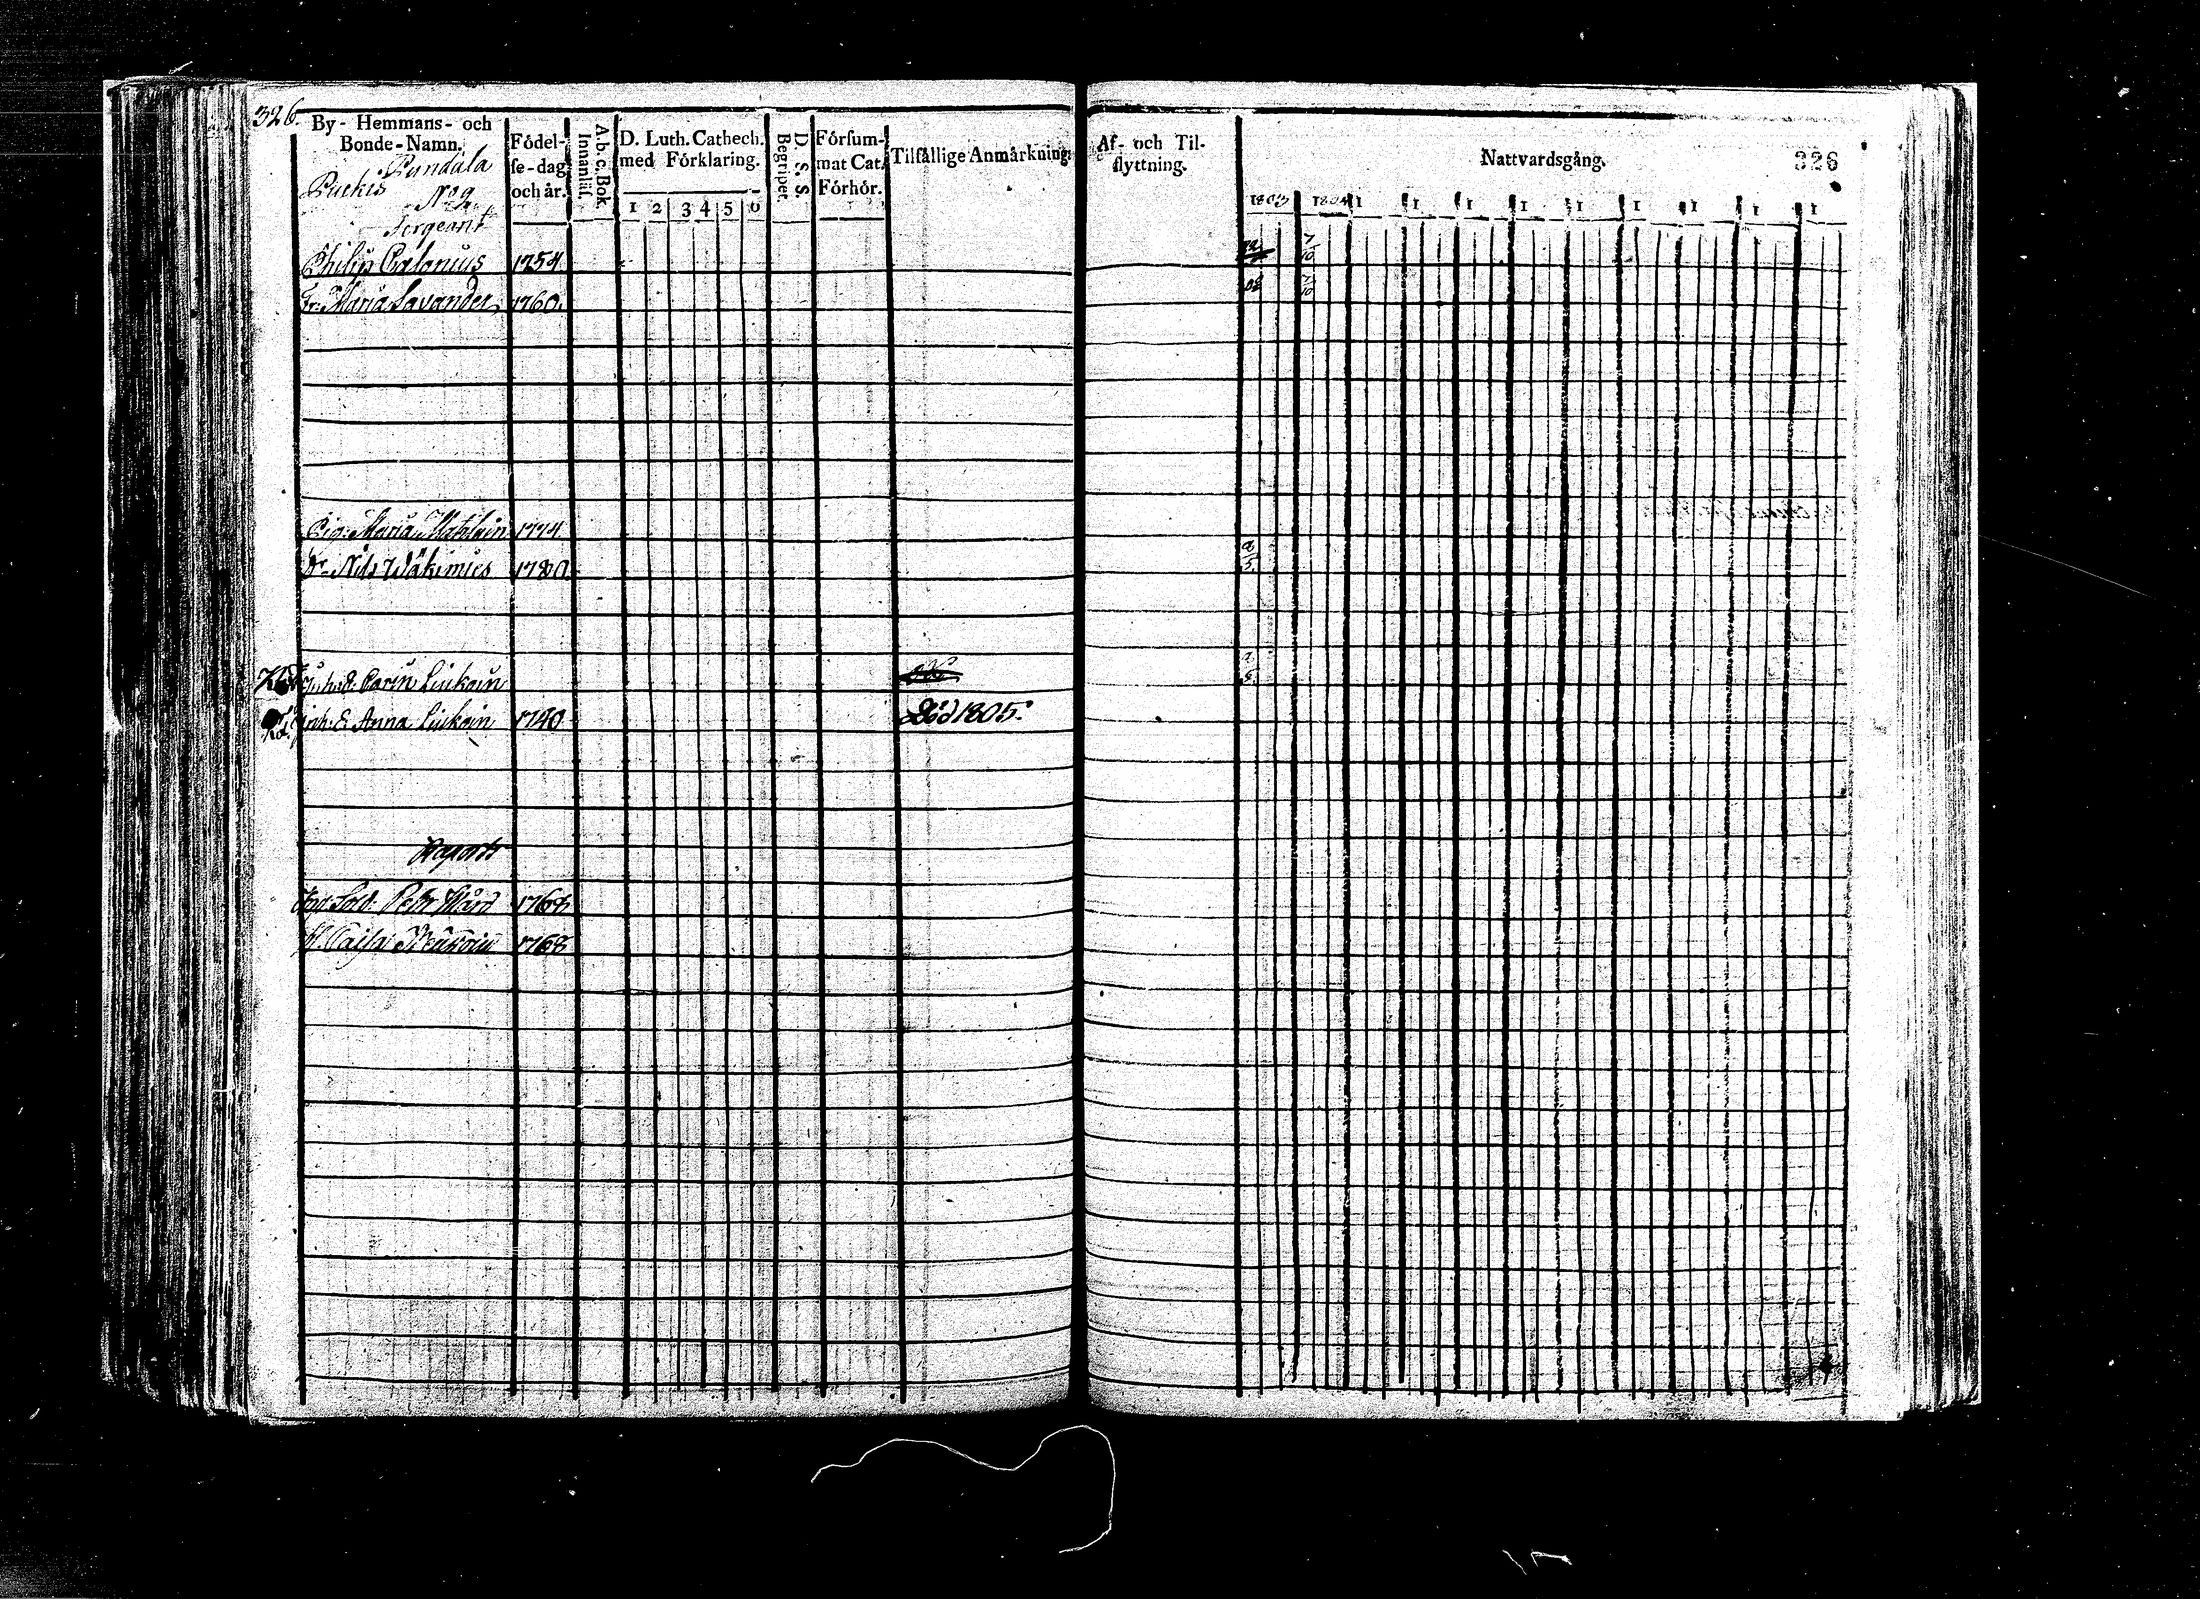 326.
By- Hemmans- och
Bonde-Namn.
Födel-
se-dag
och år.
A.b.c. Bok.
Innanläs.
D. Luth. Cathech.
med Förklaring.
1 2 3 4 5 6
D. S. S.
Begripet.
Försum-
mat Cat.
Förhör.
Tilfällige Anmärkning:
Pundala
Puckis
N:o 9.
Sergeant
Philip Calonius 1754
Fr. Maria Lavander 1760.
Pig. Maria 1774
Dr. Nils Wäkimies 1780
Inh. E. Carin Liukoin
Inh. E. Anna Liukoin 1740 Död 1805.
Sold. Petr 1768
H. Caisa 1768
Af- och Til-
flyttning.
Nattvardsgång.
326
1803 1804 1 1 1 1 1 1 1 1 1